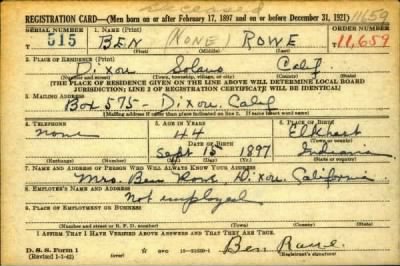 Deceased
REGISTRATION CARD—(Men born on or after February 17, 1897 and on or before December 31, 1921) 11659
SERIAL NUMBER 1. NAME (Print) ORDER NUMBER
515 BEN (NONE) ROWE 11,659
(First) (Middle) (Last)
2. PLACE OF RESIDENCE (Print)
Dixon Solano Calif.
(Number and street) (Town, township, village, or city) (County) (State)
[THE PLACE OF RESIDENCE GIVEN ON THE LINE ABOVE WILL DETERMINE LOCAL BOARD
JURISDICTION; LINE 2 OF REGISTRATION CERTIFICATE WILL BE IDENTICAL]
3. MAILING ADDRESS
Box 575 - Dixon, Calif
[Mailing address if other than place indicated on line 2. If same insert word same]
4. TELEPHONE 5. AGE IN YEARS 6. PLACE OF BIRTH
None 44 Elkhart
DATE OF BIRTH (Town or county)
Sept 15 1897 Indiana
(Exchange) (Number) (Mo.) (Day) (Yr.) (State or country)
7. NAME AND ADDRESS OF PERSON WHO WILL ALWAYS KNOW YOUR ADDRESS
Mrs Ben Rowe, Dixon, California
8. EMPLOYER'S NAME AND ADDRESS
Not employed
9. PLACE OF EMPLOYMENT OR BUSINESS
(Number and street or R. F. D. number) (Town) (County) (State)
I AFFIRM THAT I HAVE VERIFIED ABOVE ANSWERS AND THAT THEY ARE TRUE.
D. S. S. Form 1
(Revised 1-1-42) GPO Ben Rowe.
(Registrant's signature)